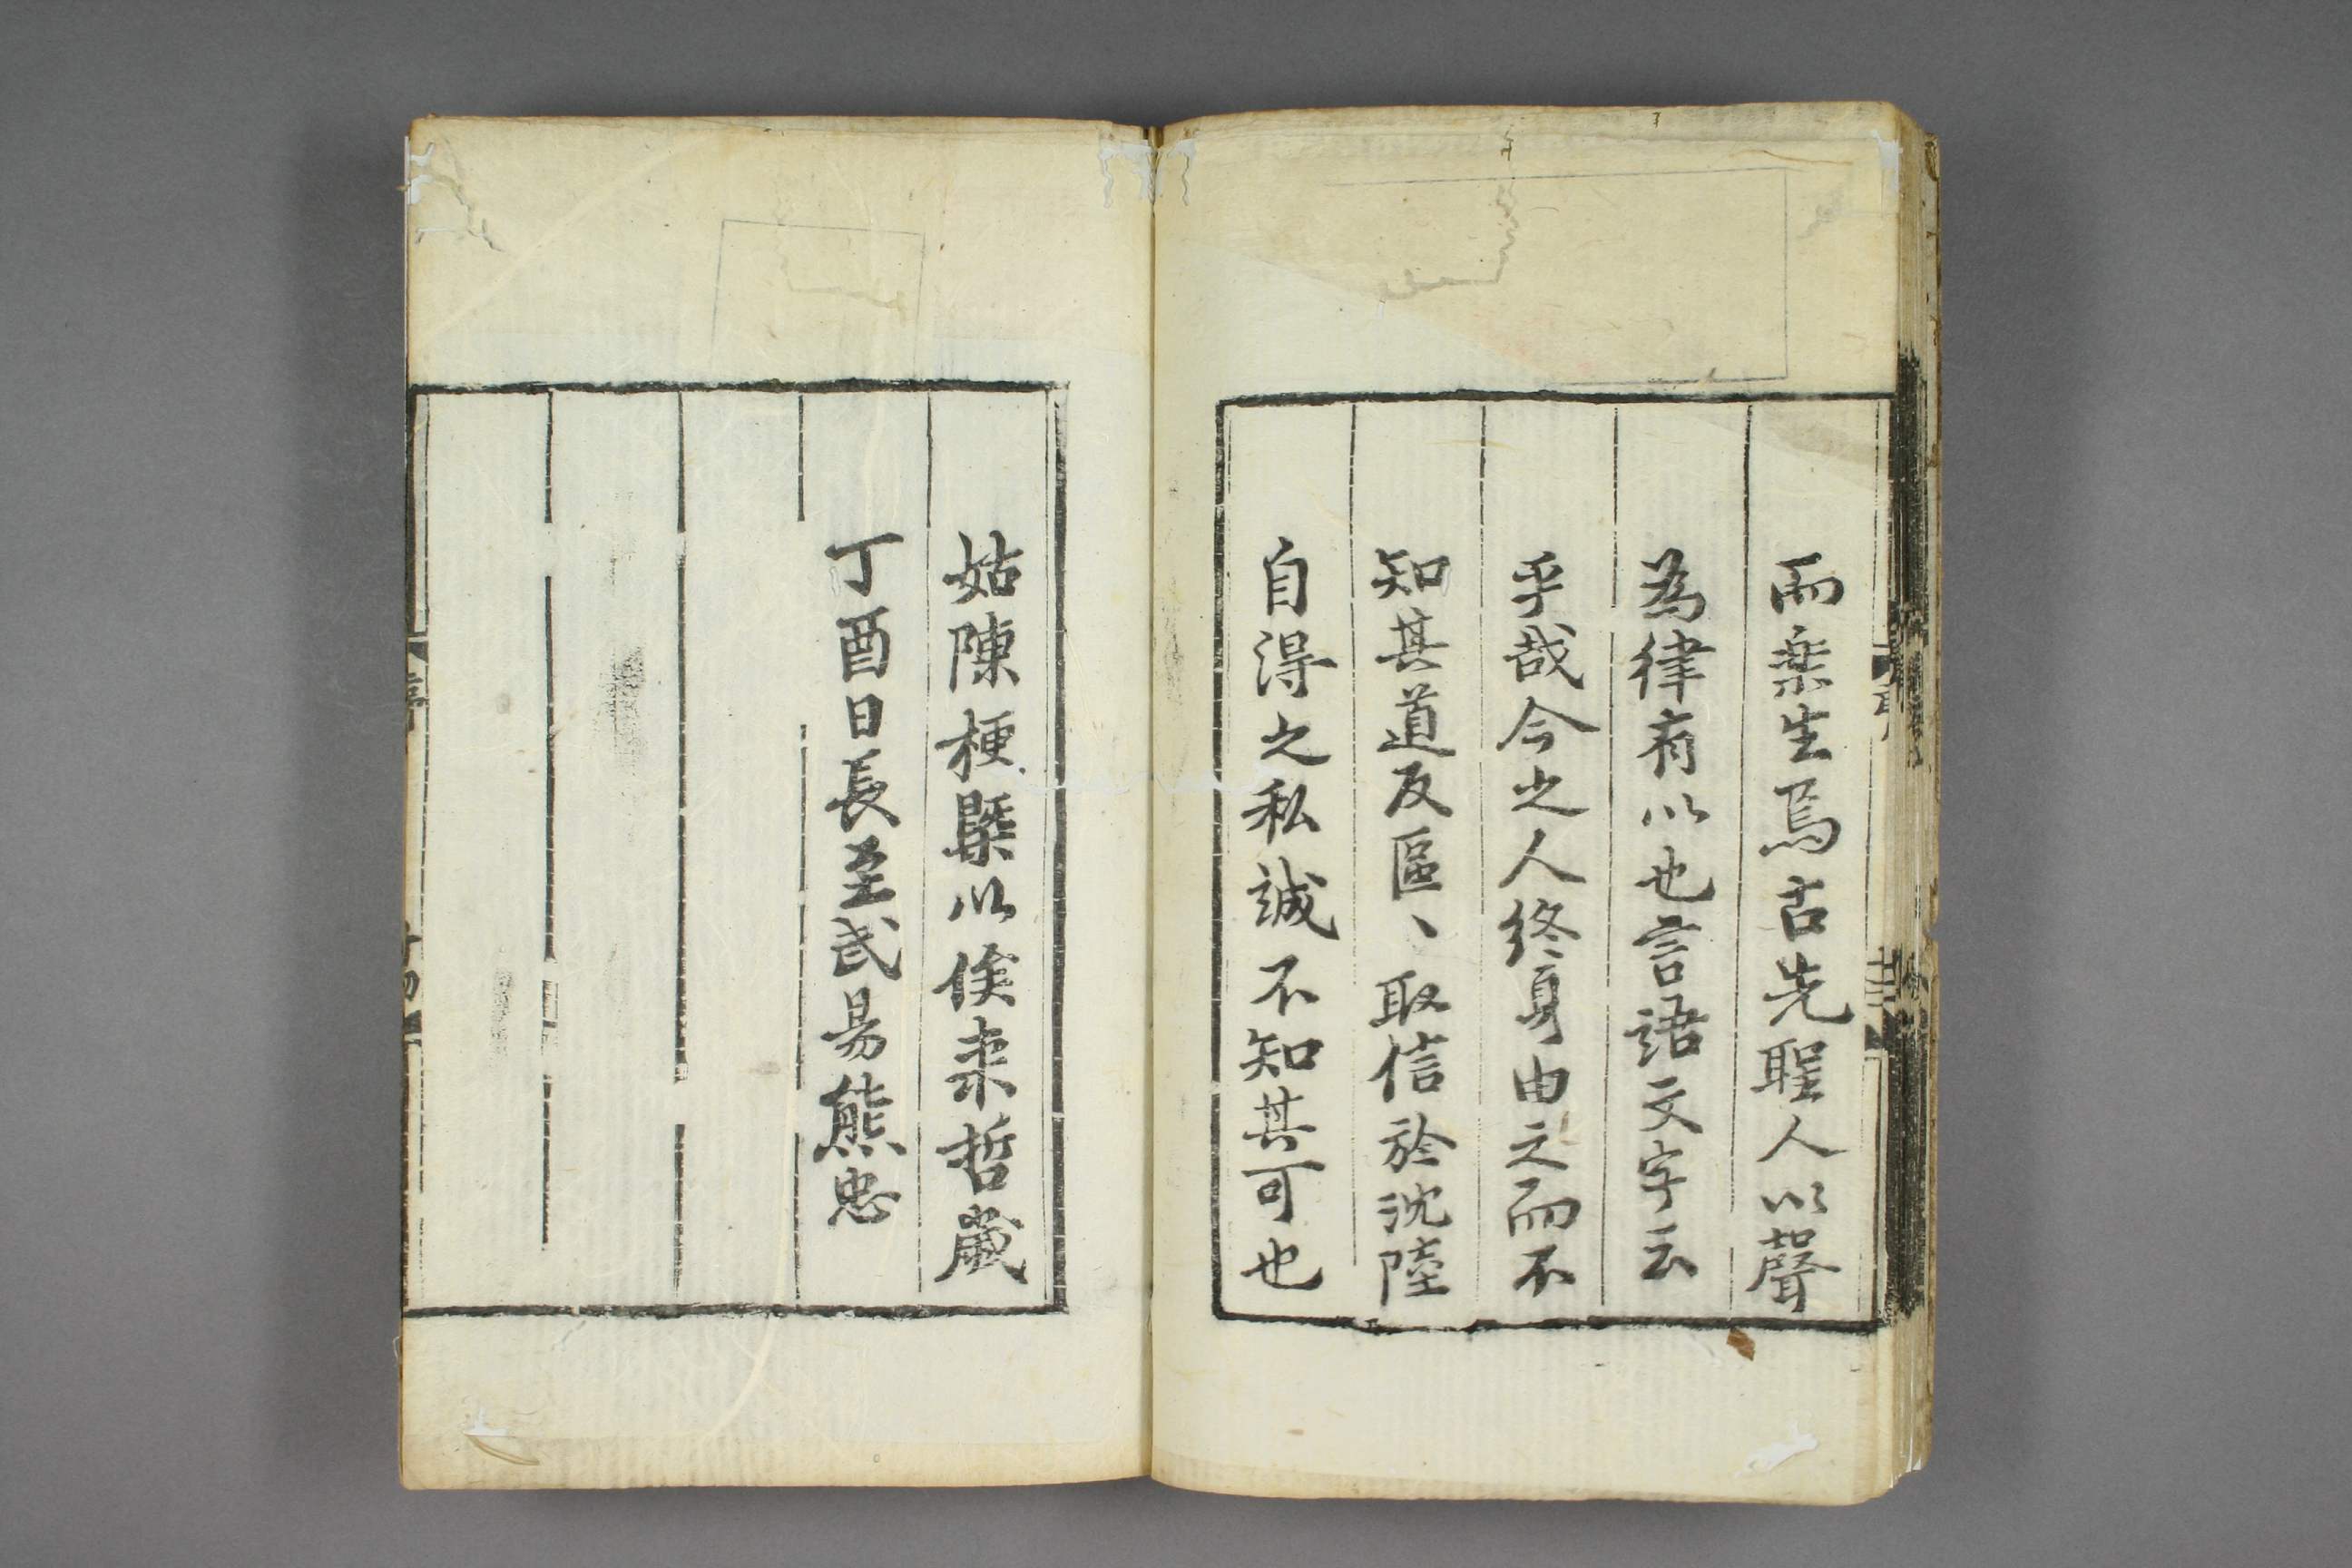 而樂生焉古先聖人以聲
為律有以也言語文字云
乎哉今之人終身由之而不
知其道反區〻取信於沈陸
自得之私誠不知其可也
姑陳梗槩以俟来哲歲
丁酉日長至武昜熊忠
序